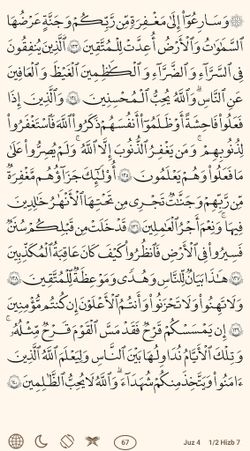 ۞ وَسَارِعُوٓا۟ إِلَىٰ مَغْفِرَةٍ مِّن رَّبِّكُمْ وَجَنَّةٍ عَرْضُهَا
ٱلسَّمَٰوَٰتُ وَٱلْأَرْضُ أُعِدَّتْ لِلْمُتَّقِينَ ١٣٣ ٱلَّذِينَ يُنفِقُونَ
فِى ٱلسَّرَّآءِ وَٱلضَّرَّآءِ وَٱلْكَٰظِمِينَ ٱلْغَيْظَ وَٱلْعَافِينَ
عَنِ ٱلنَّاسِ ۗ وَٱللَّهُ يُحِبُّ ٱلْمُحْسِنِينَ ١٣٤ وَٱلَّذِينَ إِذَا
فَعَلُوا۟ فَٰحِشَةً أَوْ ظَلَمُوٓا۟ أَنفُسَهُمْ ذَكَرُوا۟ ٱللَّهَ فَٱسْتَغْفَرُوا۟
لِذُنُوبِهِمْ وَمَن يَغْفِرُ ٱلذُّنُوبَ إِلَّا ٱللَّهُ وَلَمْ يُصِرُّوا۟ عَلَىٰ
مَا فَعَلُوا۟ وَهُمْ يَعْلَمُونَ ١٣٥ أُو۟لَٰٓئِكَ جَزَآؤُهُم مَّغْفِرَةٌ
مِّن رَّبِّهِمْ وَجَنَّٰتٌ تَجْرِى مِن تَحْتِهَا ٱلْأَنْهَٰرُ خَٰلِدِينَ
فِيهَا ۚ وَنِعْمَ أَجْرُ ٱلْعَٰمِلِينَ ١٣٦ قَدْ خَلَتْ مِن قَبْلِكُمْ سُنَنٌ
فَسِيرُوا۟ فِى ٱلْأَرْضِ فَٱنظُرُوا۟ كَيْفَ كَانَ عَٰقِبَةُ ٱلْمُكَذِّبِينَ
١٣٧ هَٰذَا بَيَانٌ لِّلنَّاسِ وَهُدًى وَمَوْعِظَةٌ لِّلْمُتَّقِينَ ١٣٨
وَلَا تَهِنُوا۟ وَلَا تَحْزَنُوا۟ وَأَنتُمُ ٱلْأَعْلَوْنَ إِن كُنتُم مُّؤْمِنِينَ
١٣٩ إِن يَمْسَسْكُمْ قَرْحٌ فَقَدْ مَسَّ ٱلْقَوْمَ قَرْحٌ مِّثْلُهُۥ ۚ
وَتِلْكَ ٱلْأَيَّامُ نُدَاوِلُهَا بَيْنَ ٱلنَّاسِ وَلِيَعْلَمَ ٱللَّهُ ٱلَّذِينَ
ءَامَنُوا۟ وَيَتَّخِذَ مِنكُمْ شُهَدَآءَ ۗ وَٱللَّهُ لَا يُحِبُّ ٱلظَّٰلِمِينَ ١٤٠
67 Juz 4 1/2 Hizb 7